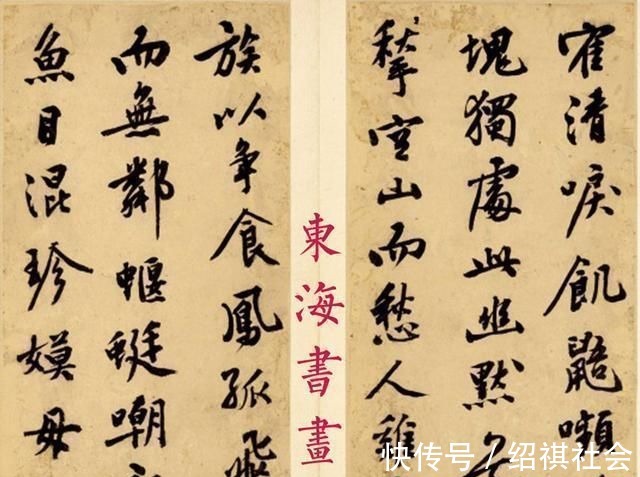 寉清唳飢鼯嚬
塊獨處此幽默
揫空山而愁人雞
東海書畫
族以争食鳳孤飛
而無鄰蝘蜓嘲
魚目混珍嫫母
快传号 / 绍祺社会